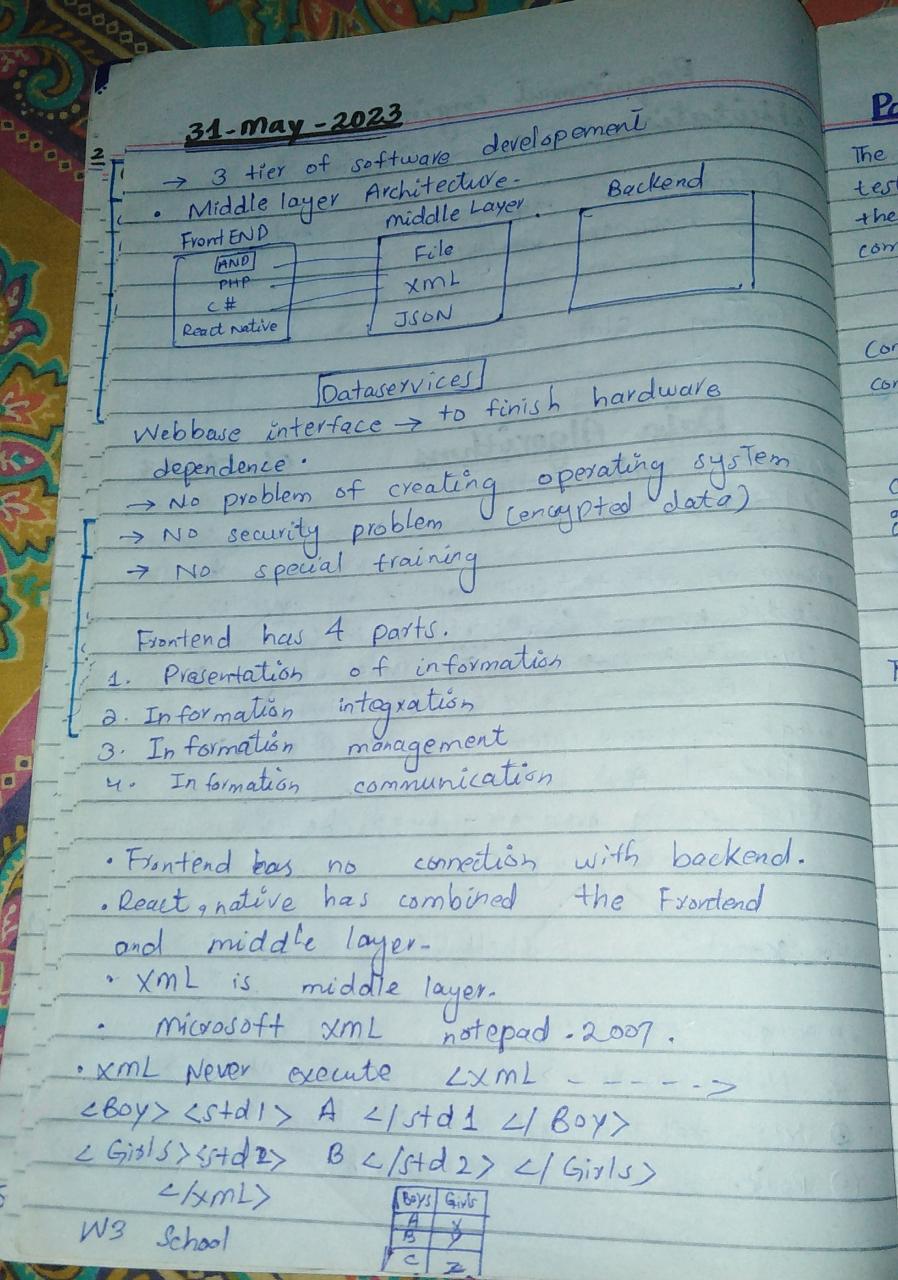 31-May-2023
2
→ 3 tier of software developement
• Middle layer Architecture.
FrontEND
middle Layer
Backend
AND
PHP
C#
React Native
File
XML
JSON
Dataservices
Webbase interface → to finish hardware
dependence.
→ No problem of creating operating system
→ No security problem (encrypted data)
→ No special training
Frontend has 4 parts.
1. Presentation of information
2. Information integration
3. Information management
4. Information communication
• Frontend has no connection with backend.
• React, native has combined the Frontend
and middle layer.
• XML is middle layer.
• Microsoft XML notepad . 2007.
• XML Never execute <XML ------>
<Boy> <std1> A </std1 </Boy>
<Girls> <std2> B </std2> </Girls>
</XML>
Boys Girls
A X
B Y
C Z
W3 School
Po
The
test
the
com
Con
con